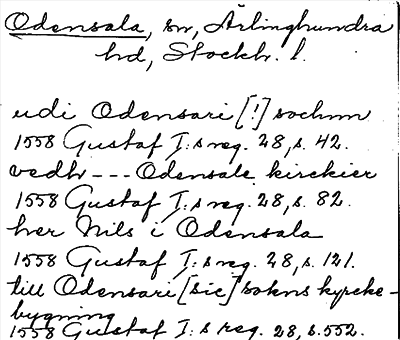 Odensala, sn, Ärlinghundra
hd, Stockh. l.
udi Odensari [!] sochnn
1558 Gustaf I:s reg. 28, s. 42.
vedh --- Odensale kirckier
1558 Gustaf I:s reg. 28, s. 82.
her Nils i Odensala
1558 Gustaf I:s reg. 28, s. 121.
till Odensari [sic] sokns kyrcke-
bygning
1558 Gustaf I:s reg. 28, s. 552.